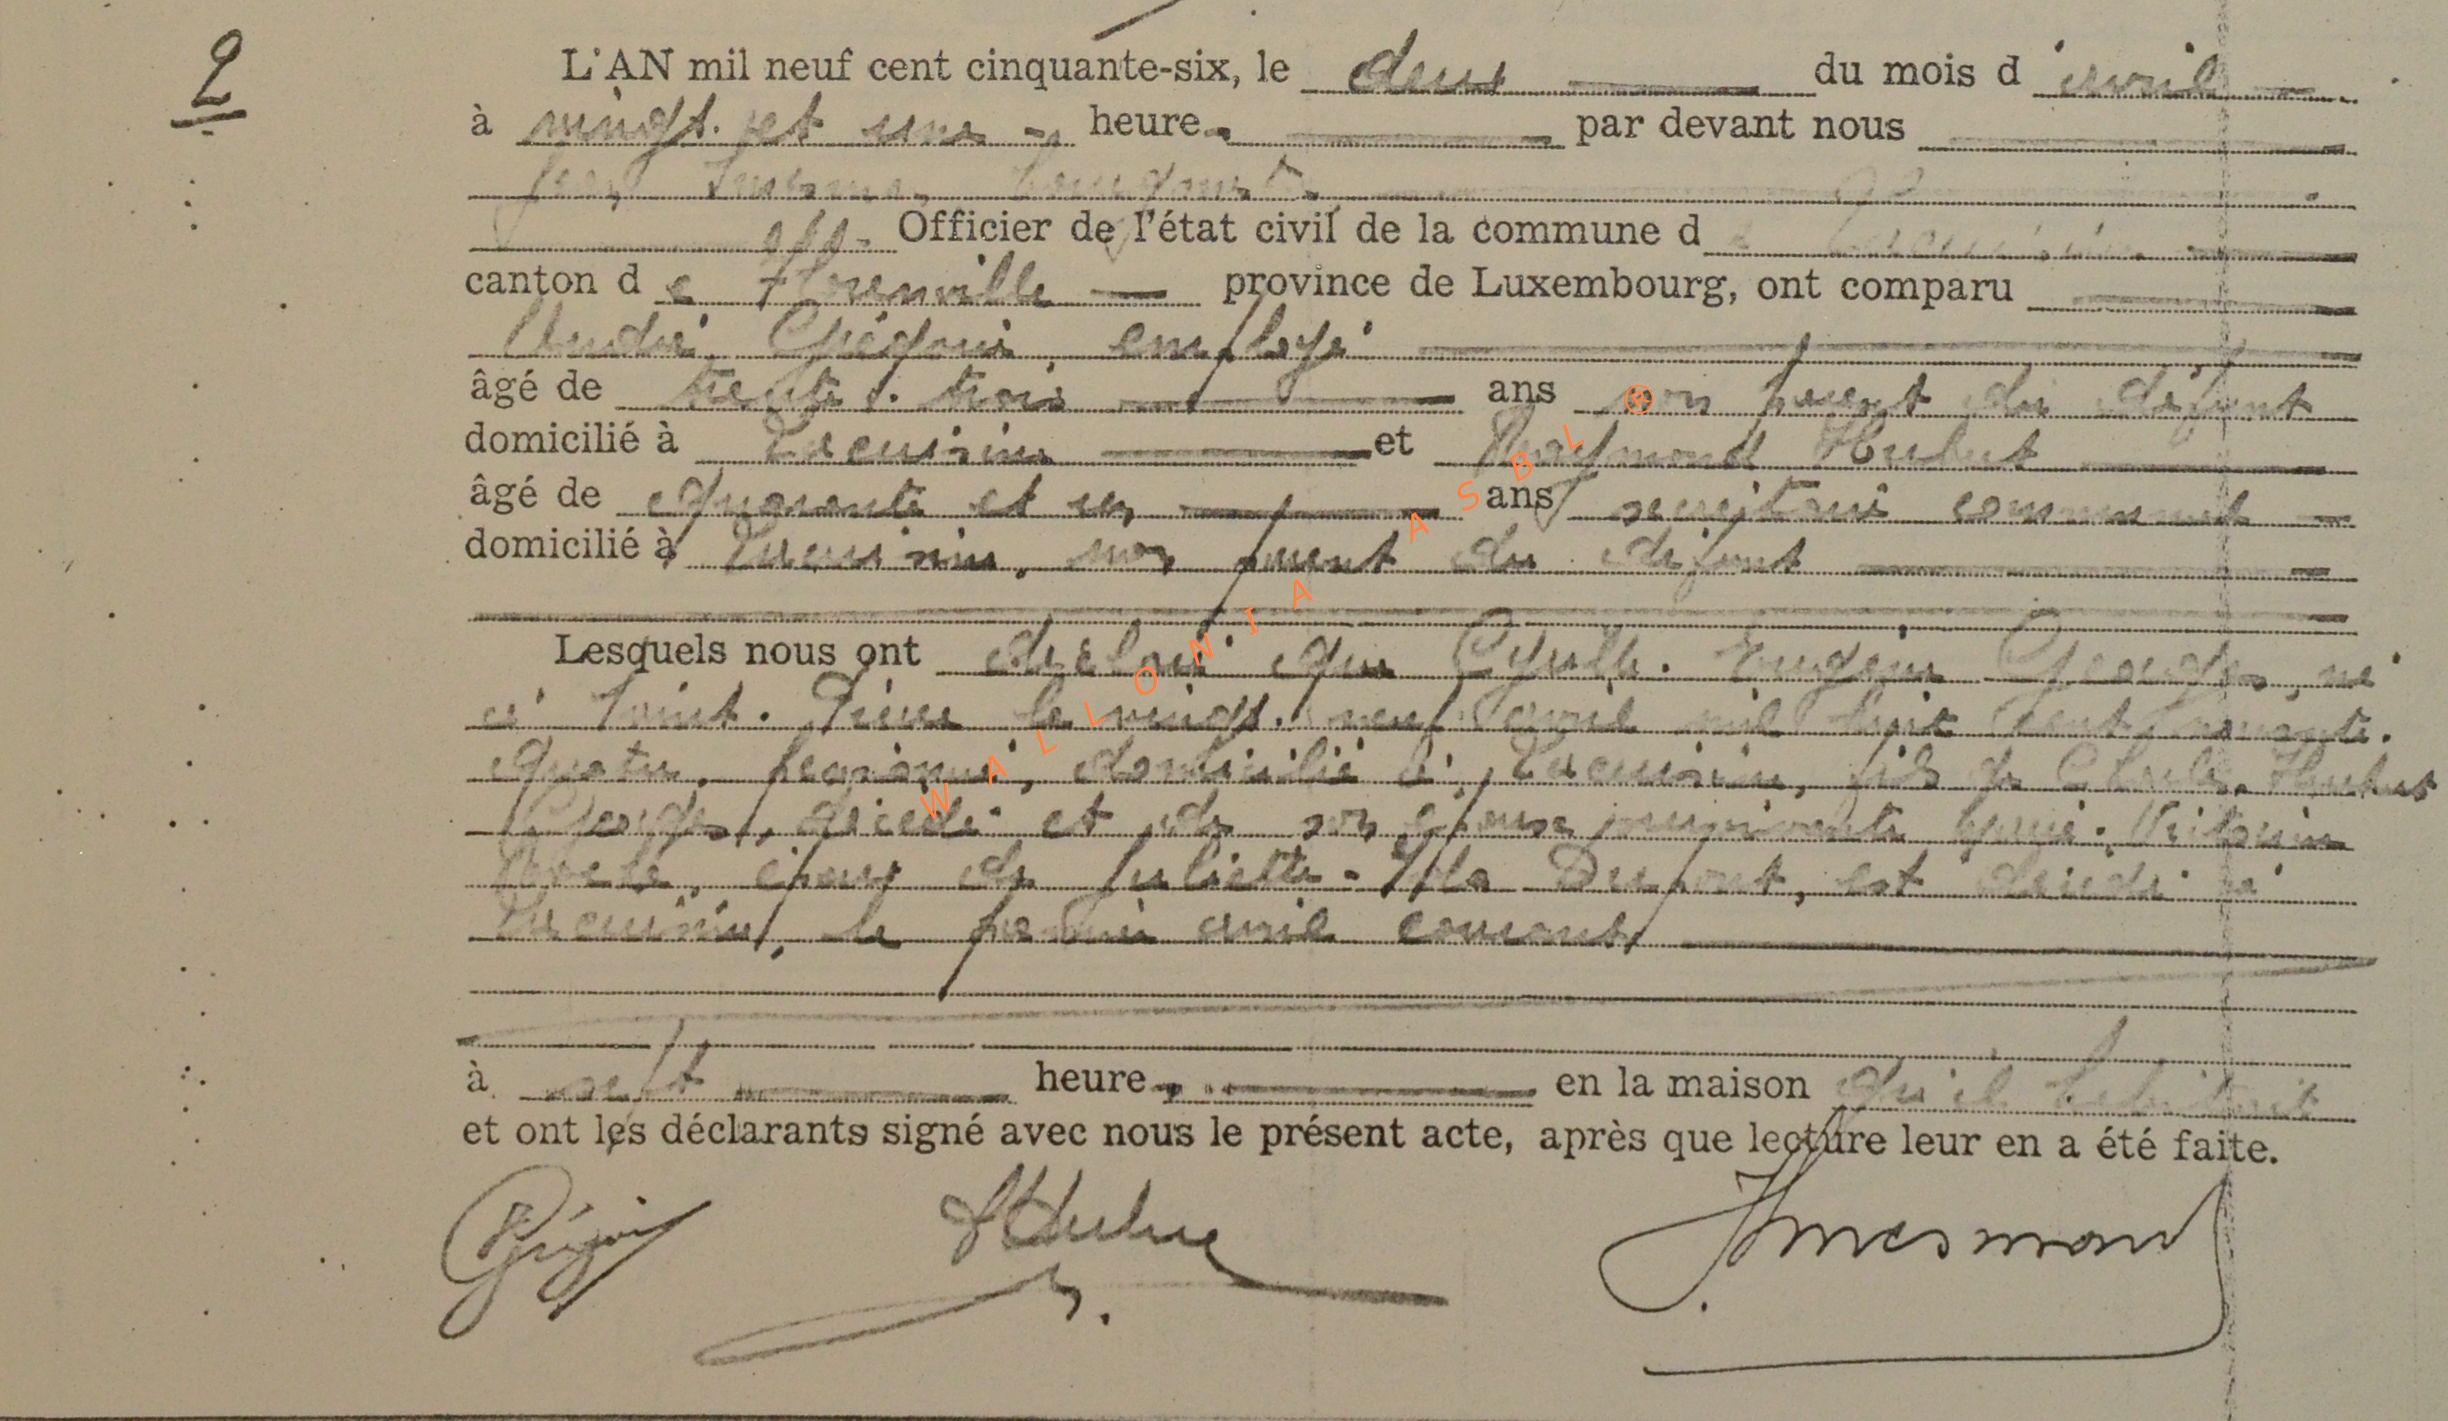 2
L'AN mil neuf cent cinquante-six, le deux du mois d'avril
à vingt et une heure par devant nous
ff. Officier de l'état civil de la commune de Lacuisine
canton de Florenville province de Luxembourg, ont comparu
André Grégoire, employé
âgé de trente-trois ans non parent du défunt
domicilié à Lacuisine et Raymond Hubert
âgé de quarante et un ans secrétaire communal
domicilié à Lacuisine, non parent du défunt
Lesquels nous ont déclaré que Eugène Georges, né
à Saint-Pierre le vingt-neuf avril mil huit cent nonante-
quatre, pensionné, domicilié à Lacuisine, fils de Hubert
Georges, décédé et de son épouse survivante Marie
époux de Juliette Dupont, est décédé à
Lacuisine, le premier avril courant
à sept heure en la maison qu'il habitait
et ont les déclarants signé avec nous le présent acte, après que lecture leur en a été faite.
Grégoire Hubert
WALLONIA ASBL